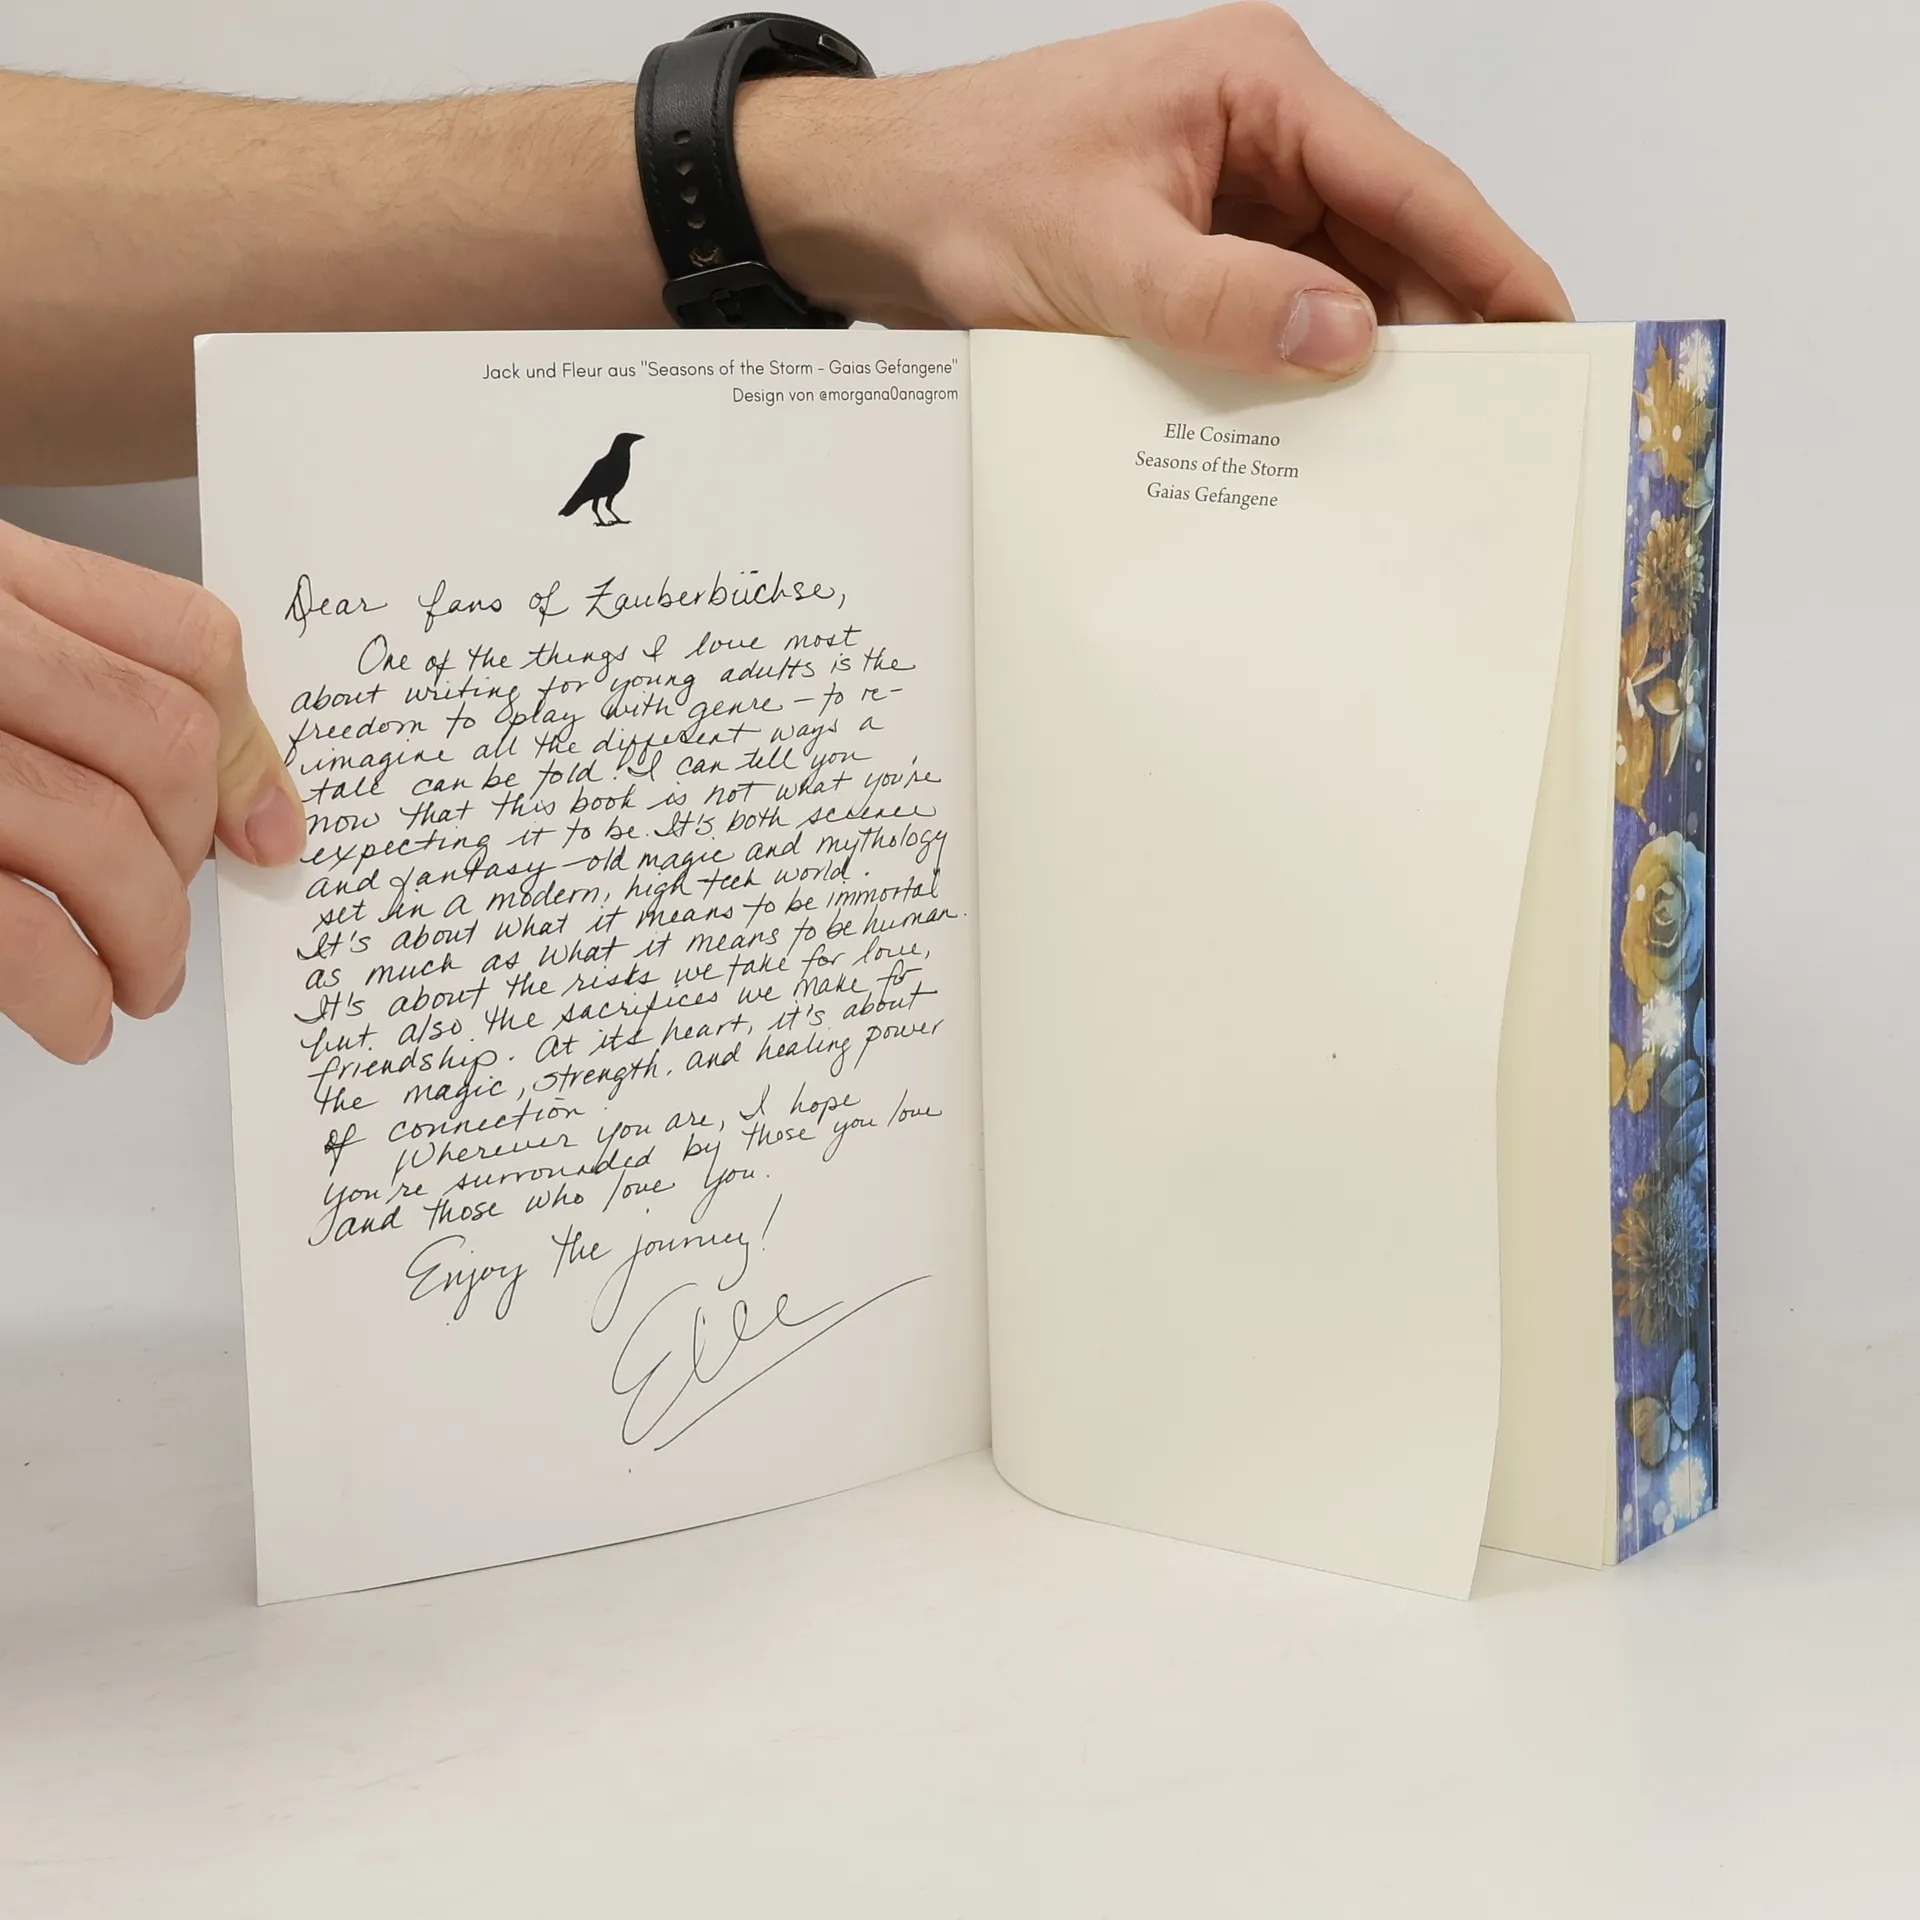 Jack und Fleur aus "Seasons of the Storm - Gaias Gefangene"
Design von @morgana0anagrom
Dear fans of Zauberbüchse,
One of the things I love most
about writing for young adults is the
freedom to play with genre – to re-
imagine all the different ways a
tale can be told. I can tell you
now that this book is not what you're
expecting it to be. It's both science
and fantasy – old magic and mythology
set in a modern, high-tech world.
It's about what it means to be immortal
as much as what it means to be human.
It's about the risks we take for love,
but also the sacrifices we make for
friendship. At its heart, it's about
the magic, strength, and healing power
of connection.
Wherever you are, I hope
you're surrounded by those you love
and those who love you.
Enjoy the journey!
Elle
Elle Cosimano
Seasons of the Storm
Gaias Gefangene